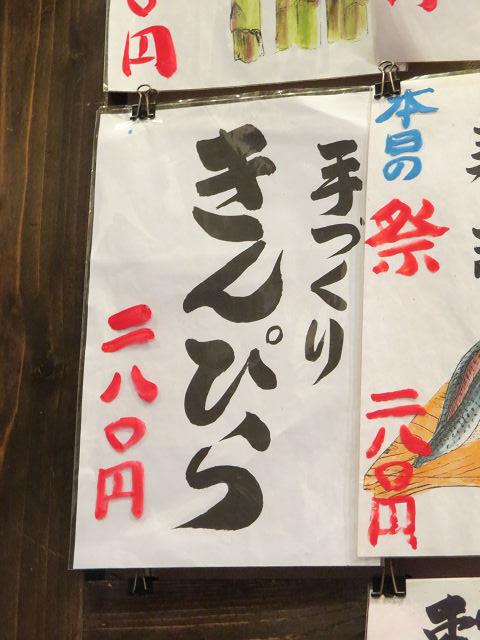 手づくり
きんぴら
二八〇円
本日の
祭
二八〇円
〇円
円